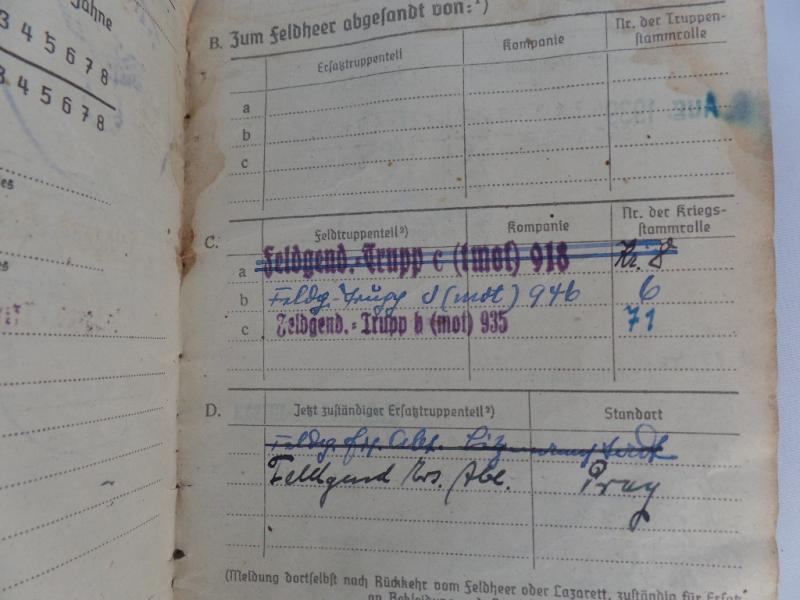 ähne
3 4 5 6 7 8
3 4 5 6 7 8
B. Zum Feldheer abgesandt von:¹)
Ersatztruppenteil Kompanie Nr. der Truppen-
stammrolle
a
b
c
C. Feldtruppenteil²) Kompanie Nr. der Kriegs-
stammrolle
a Feldgend.-Trupp c (tmot) 918 Nr. 8
b Feldg.-Trupp d (mot) 946 6
c Feldgend.-Trupp b (mot) 935 71
D. Jetzt zuständiger Ersatztruppenteil²) Standort
Feldg. Ers. Abt.
Feldgend Ers. Abt. Prag
(Meldung dortselbst nach Rückkehr vom Feldheer oder Lazarett, zuständig für Ersatz